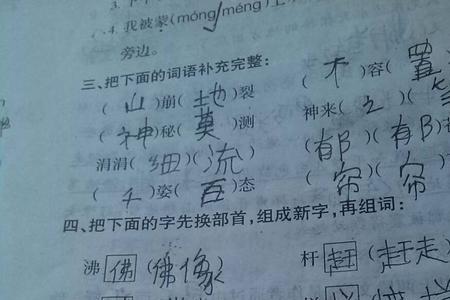 4. 我被蒙(móng/méng)上
旁边。
三、把下面的词语补充完整:
(山)崩(地)裂 (不)容(置
(神)秘(莫)测 神来(之)(
涓涓(细)(流) (郁)(郁)
(千)姿(百)态 (帘)(帘
四、把下面的字先换部首,组成新字,再组词:
沸 佛 (佛像) 杆 赶 (赶走)